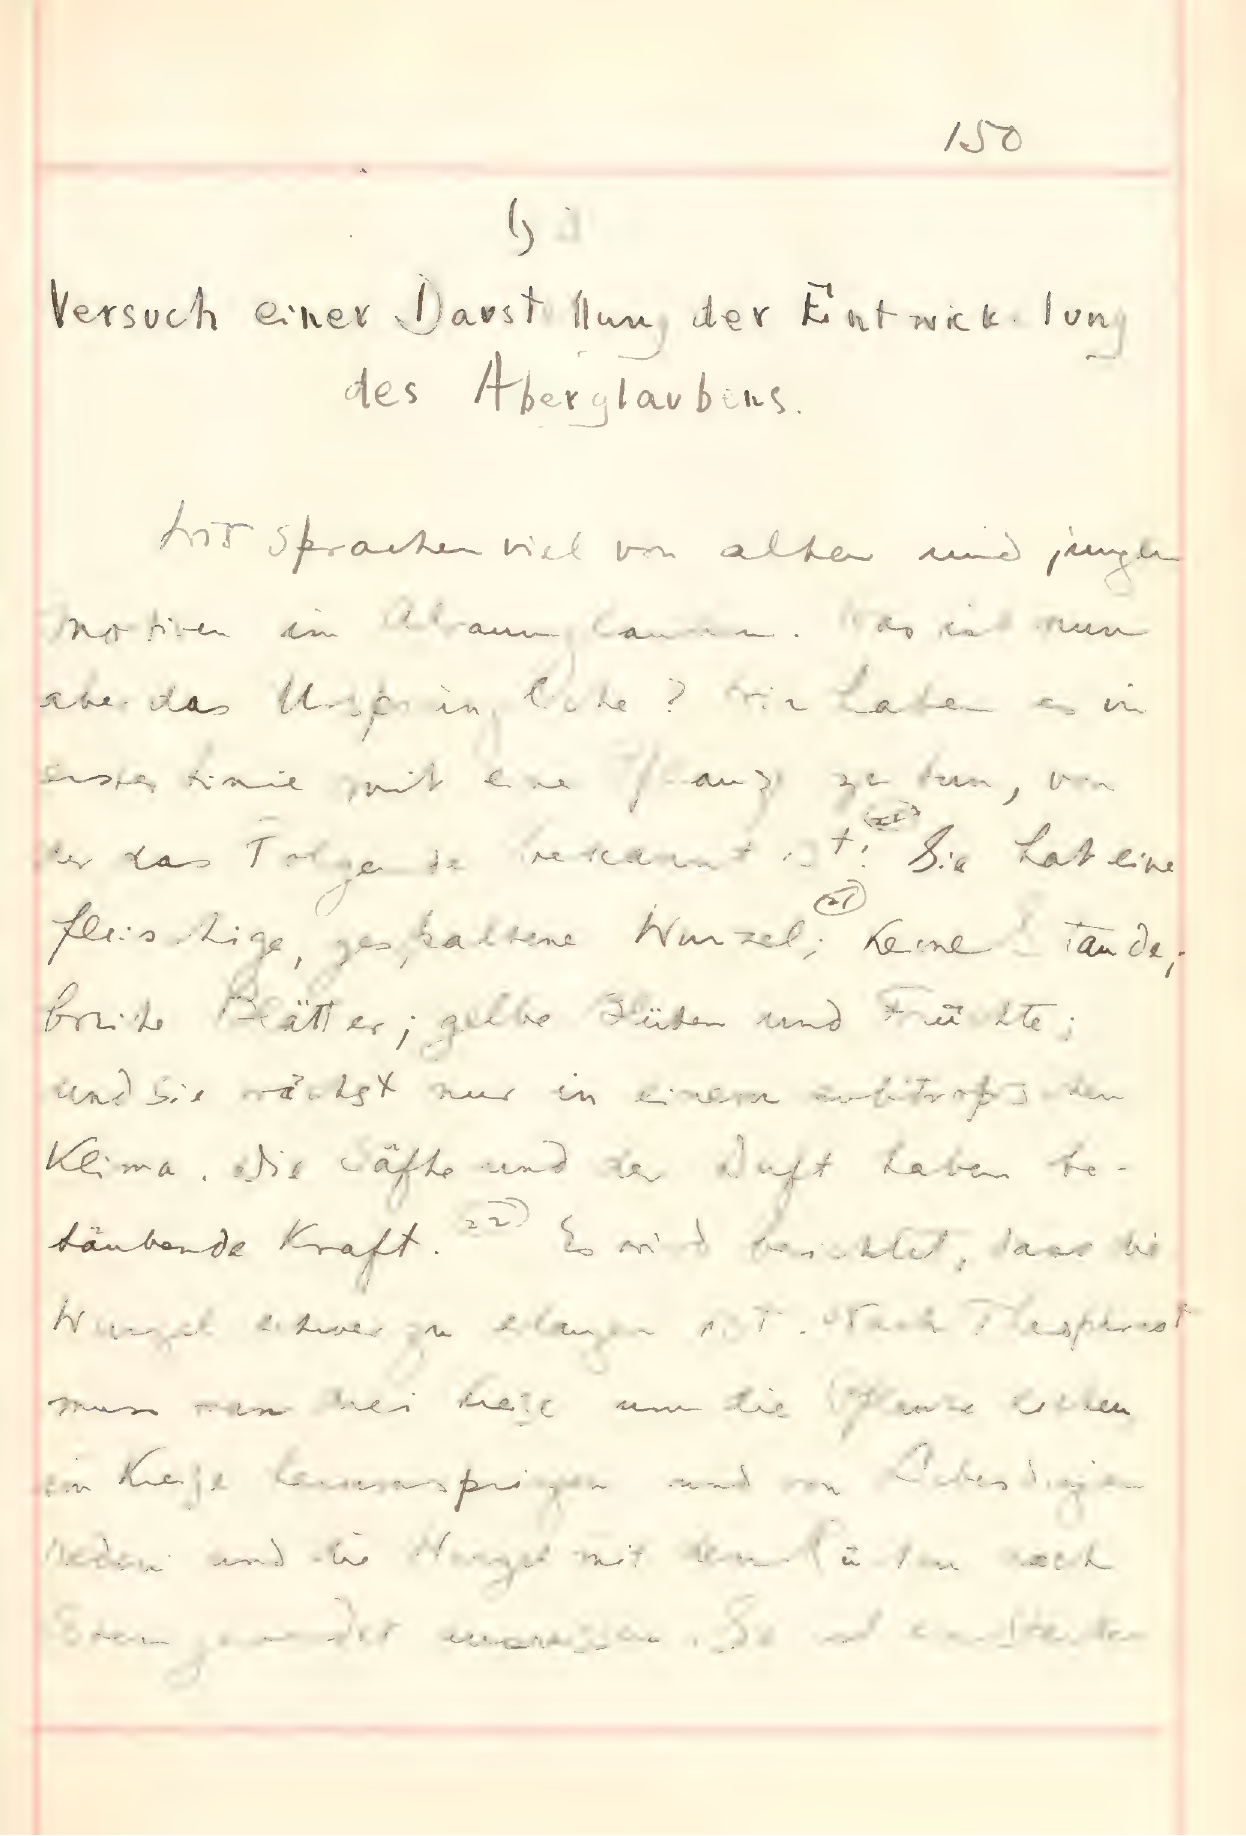 150
b)
Versuch einer Darstellung der Entwickelung
des Aberglaubens.
Wir sprachen viel von alten und jungen
Motiven im Alraunglauben. Was ist nun
aber das Ursprüngliche? Wir haben es in
erster Linie mit einer Pflanze zu tun, von
der das Folgende bekannt ist: Sie hat eine
fleischige, gespaltene Wurzel; (21) keine Staude;
breite Blätter; gelbe Blüten und Früchte;
und sie wächst nur in einem subtropischen
Klima. Die Säfte und der Duft haben be-
täubende Kraft. (22) Es wird berichtet, dass die
Wurzel schwer zu erlangen ist. Nach Theophrast
muss man drei Kreise um die Pflanze ziehen
im Kreise herumspringen und von Liebesdingen
reden und die Wurzel mit dem Rücken nach